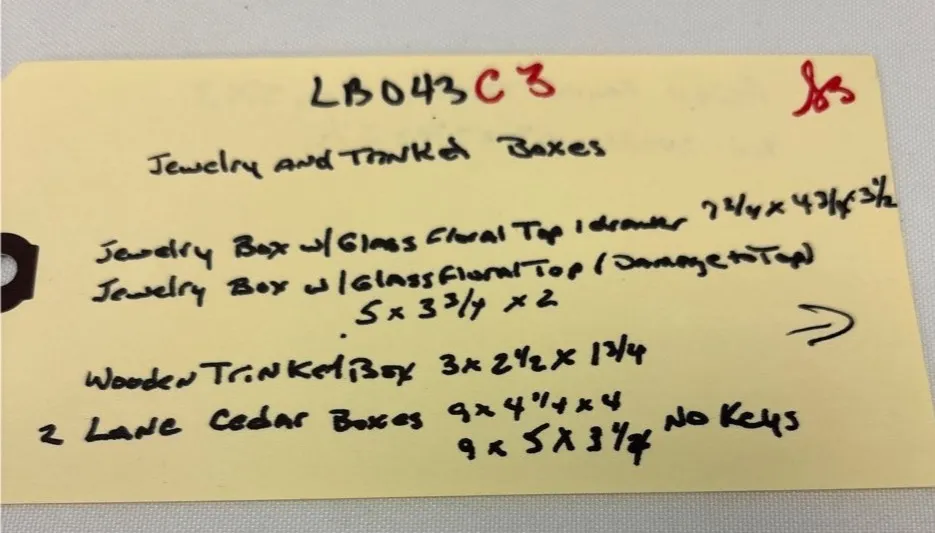 LB043 C3
Jewelry AND TrinKet Boxes
Jewelry Box w/ Glass Floral Top 1 drawer 7 3/4 x 4 3/4 x 3 1/2
Jewelry Box w/ Glass Floral Top (Damage to Top)
5 x 3 3/4 x 2
Wooden TriNKet Box 3 x 2 1/2 x 1 3/4
2 LANE Cedar Boxes 9 x 4 1/4 x 4
9 x 5 x 3 1/2 No Keys